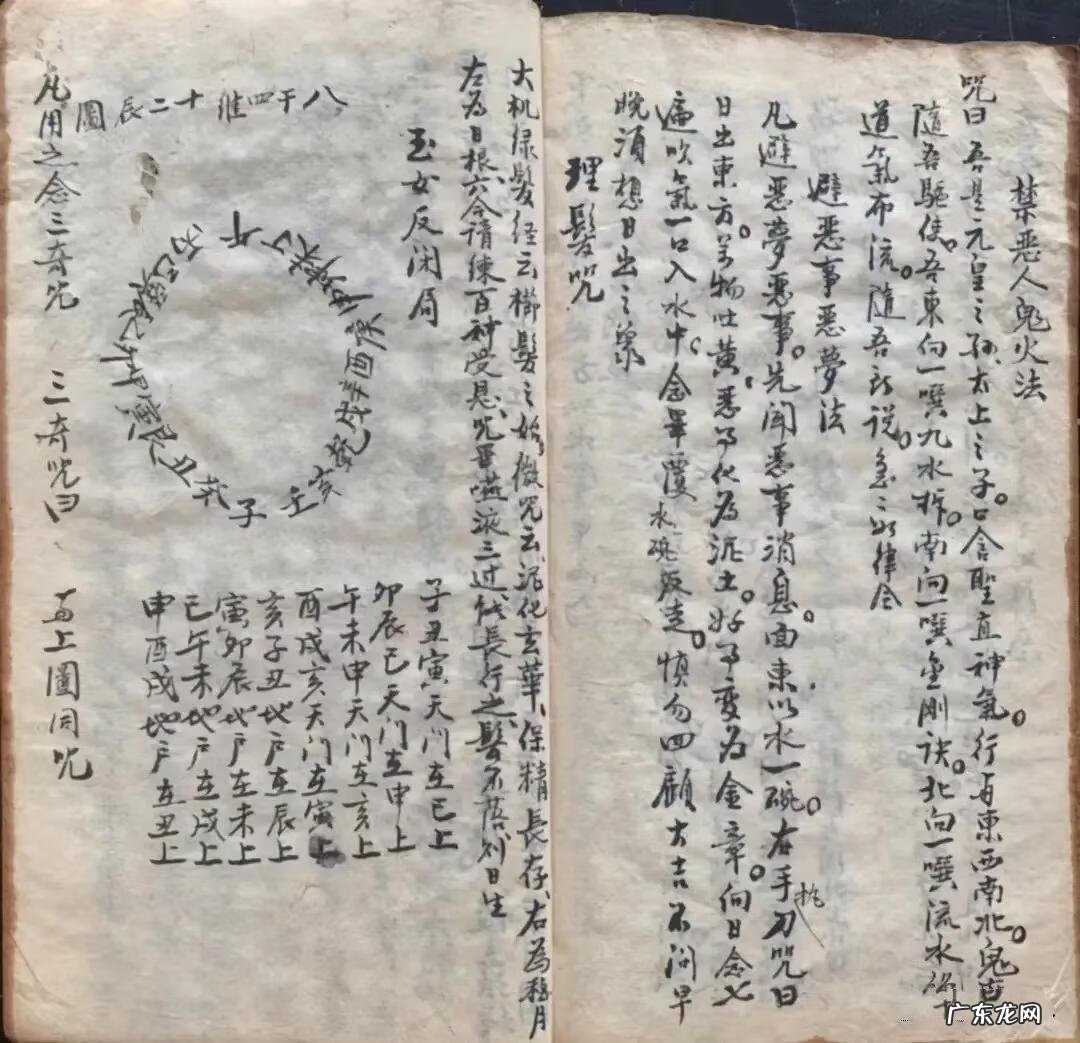 禁恶人鬼火法
咒曰 吾是元皇之孙、太上之子。口含聖直神氣。行与東西南北。鬼
隨吾驅使。吾東向一噀九水柞。南向一噀金刚訣。北向一噀流水
道氣布流。隨吾所说。急急如律令
避恶事恶夢法
凡避恶夢恶事。先闻恶事消息。面東以水一碗。右手抱刀咒曰
日出東方。万物吐黄。恶事化为泥土。好事变为金章。向日念七
遍吹氣一口入水中。念畢覆水碗疾走。慎勿四顧大吉不问早
晚须想日出之象
理髮咒
大机绿髮经云櫛髮之始、微咒云、泥化玄華、保精長存、右为月
左为日根、六合清练百神受恩、咒畢嚥液三过、長行之、髮不落、日生
玉女反闭局
子丑寅天门在巳上
卯辰巳天门在申上
午未申天门在亥上
酉戌亥天门在寅上
亥子丑地户在辰上
寅卯辰地户在未上
巳午未地户在戌上
申酉戌地户在丑上
八干四维十二辰圖
午丁未坤申庚酉辛戌乾亥壬子癸丑艮寅甲卯乙辰巽巳丙
凡用之念三奇咒 三奇咒曰 与上圖同咒
广东龙网